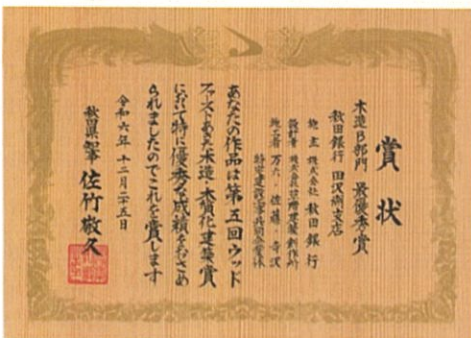 賞状
木造B部門 最優秀賞
秋田銀行 田沢湖支店
施主 株式会社 秋田銀行
設計者 株式会社
施工者 万六・佐藤・寺沢
特定建設工事共同企業体
あなたの作品は第五回ウッド
ファーストあきた木造・木質化建築賞
において特に優秀な成績をおさめ
られましたのでこれを賞します
令和六年 十二月二十五日
秋田県知事 佐竹敬久